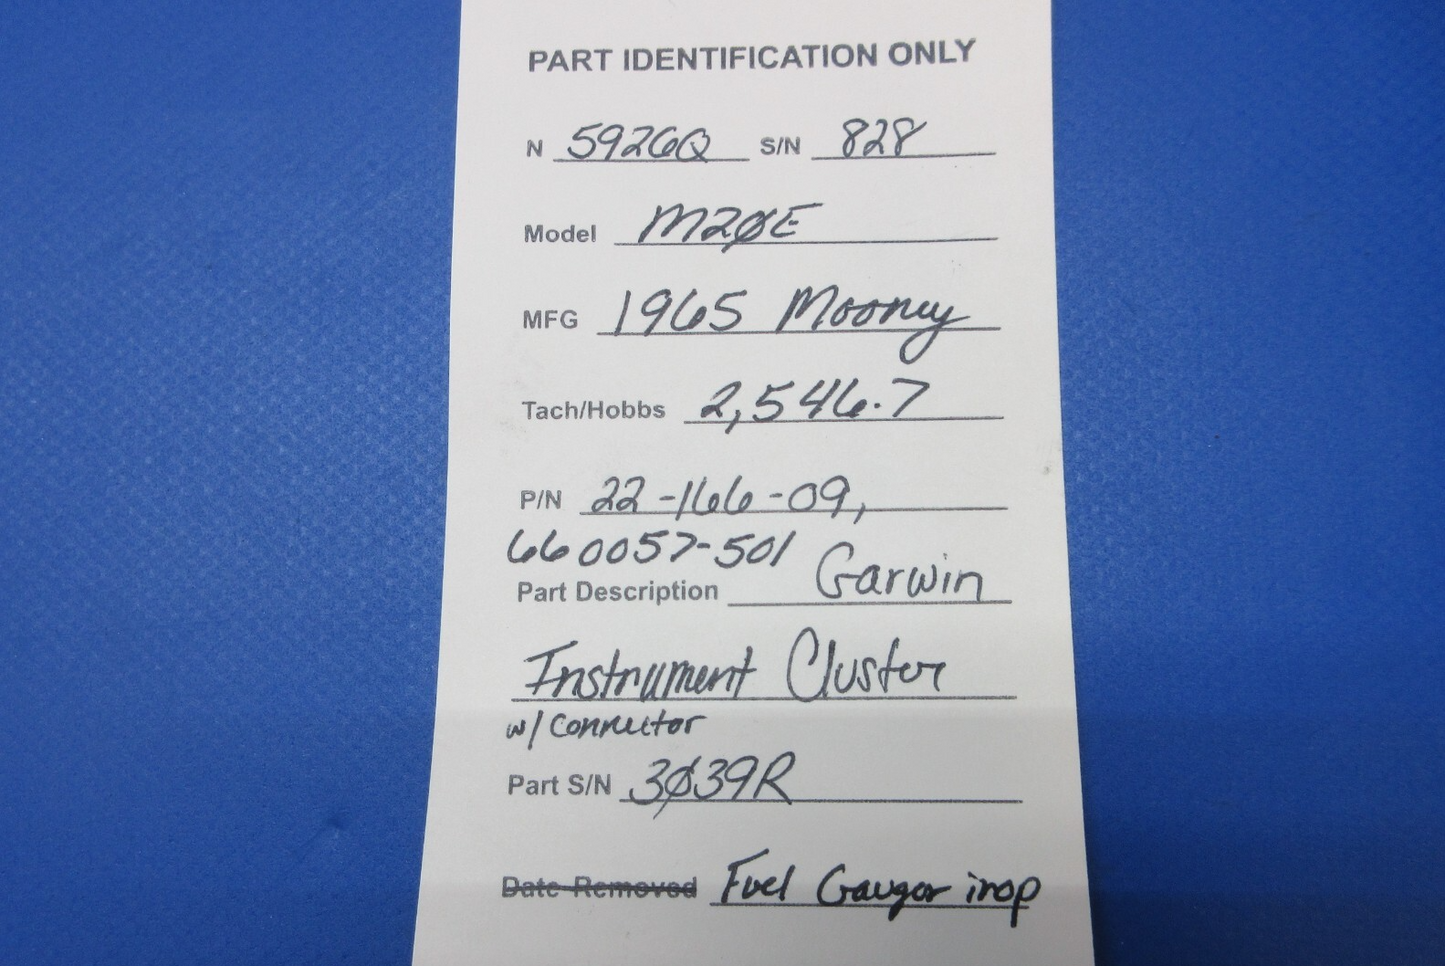 PART IDENTIFICATION ONLY
N 5926Q S/N 828
Model M20E
MFG 1965 Mooney
Tach/Hobbs 2,546.7
P/N 22-166-09,
660057-501
Part Description Garwin
Instrument Cluster
w/ Connector
Part S/N 3039R
Date Removed Fuel Gauges inop